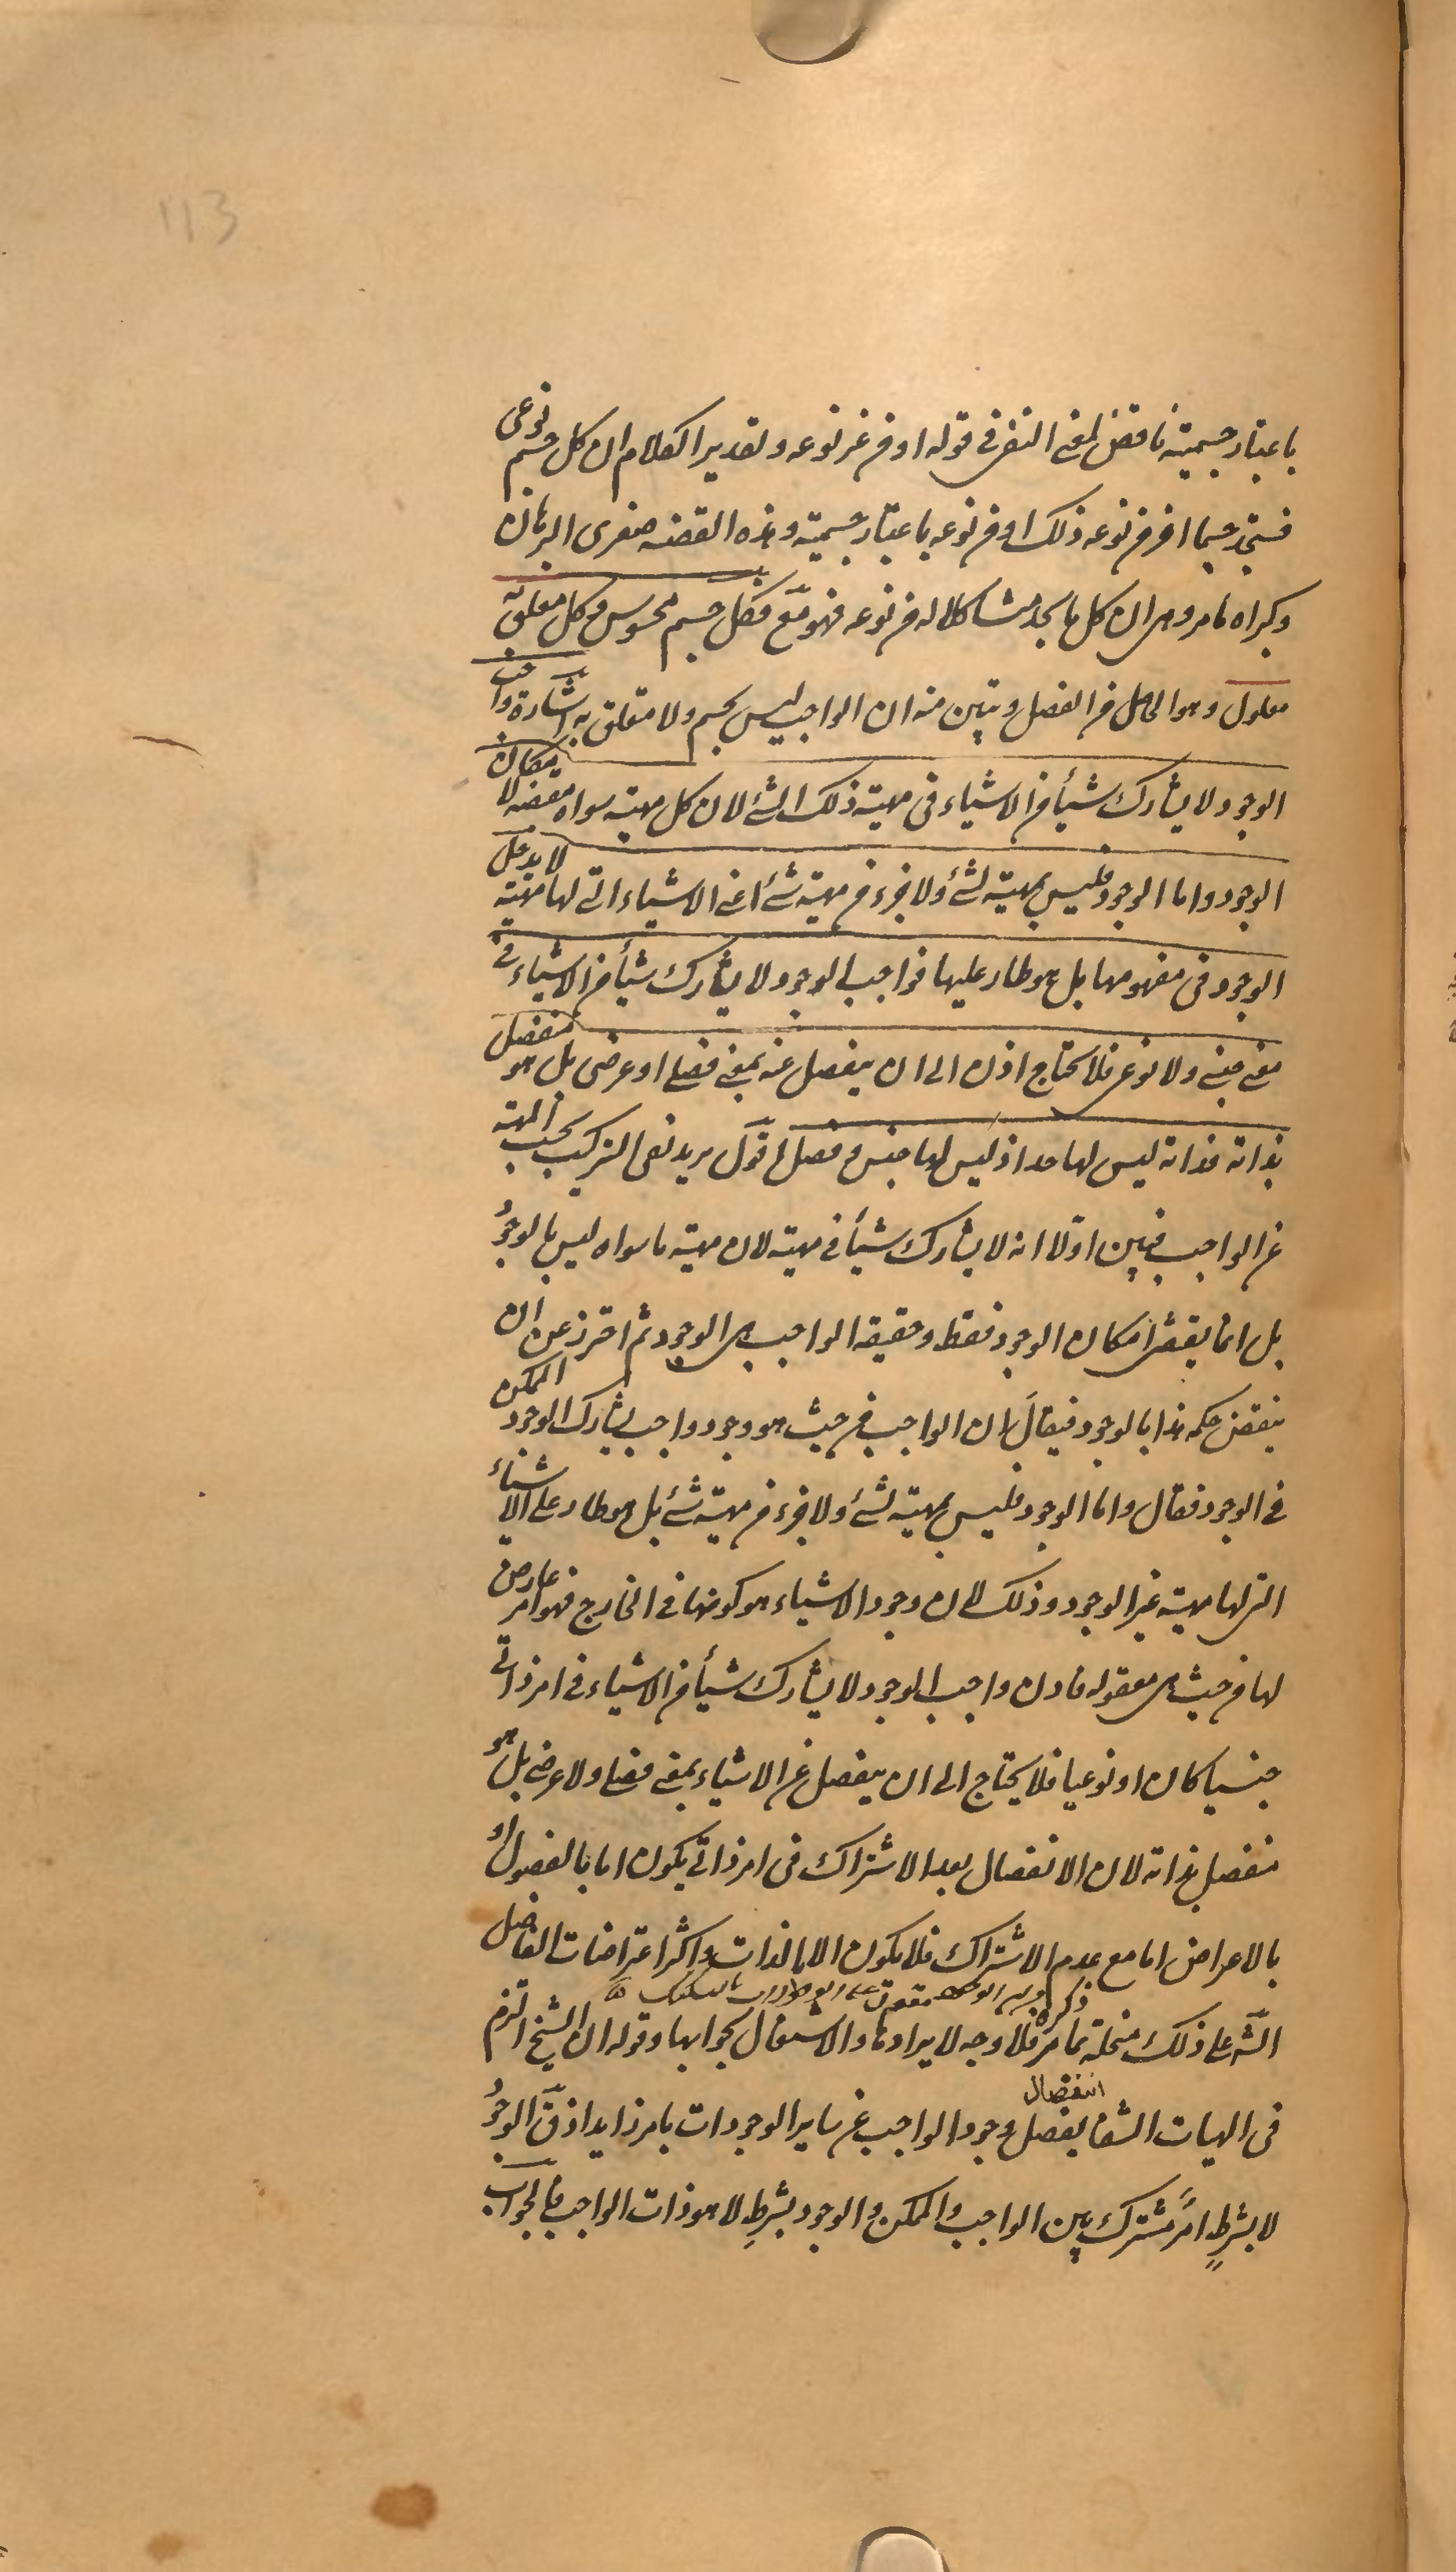 113
باعتبار جسميته ناقض لمعنى النفى فى قوله او من غير نوعه وتقدير الكلام ان كل جسم نوعى
فستجد جسما اخر من نوعه ذلك او من نوعه باعتبار جسميته وهذه القضيه صغرى البرهان
وكبراه ما مر وهى ان كل ما يجد مشاكلا له من نوعه فهو مع فكل جسم محسوس وكل متعلق به
معلول وهو الحاصل من الفصل وتبين منه ان الواجب ليس بجسم ولا متعلق به اشارة واجب
الوجود لا يشارك شيأ من الاشياء فى مهية ذلك الشئ لان كل مهية سواه مقتضيه لامكان
الوجود واما الوجود فليس بمهية لشئ ولا جزء من مهية شئ اعنى الاشياء التى لها مهية لا يدخل
الوجود فى مفهومها بل هو طار عليها فواجب الوجود لا يشارك شيأ من الاشياء فى
معنى جنسى ولا نوعى فلا يحتاج اذن الى ان ينفصل عنه بمعنى فصلى او عرضى بل هو منفصل
بذاته فذاته ليس لها حد اذ ليس لها جنس وفصل اقول يريد نفى التركيب بحسب المهية
عن الواجب فبين اولا انه لا يشارك شيأ فى مهيته لان مهية ما سواه ليس بالوجود
بل انما يقتضى امكان الوجود فقط وحقيقة الواجب هى الوجود ثم احترز عن ان
ينقض حكمه هذا بالوجود فيقال ان الواجب من حيث هو وجود واجب يشارك الوجود الممكن
فى الوجود فقال واما الوجود فليس بمهية لشئ ولا جزء من مهية شئ بل هو طار على الاشياء
التى لها مهية غير الوجود وذلك لان وجود الاشياء هو كونها فى الخارج فهو امر عارض
لها من حيث هى معقوله فاذن واجب الوجود لا يشارك شيأ من الاشياء فى امر ذاتى
جنسيا كان او نوعيا فلا يحتاج الى ان ينفصل عن الاشياء بمعنى فصلى ولا عرضى بل هو
منفصل بذاته لان الانفصال بعد الاشتراك فى امر ذاتى يكون اما بالفصول او
بالاعراض اما مع عدم الاشتراك فلا يكون الا بالذات واكثر اعتراضات الفاضل
الشه على ذلك منحلة بما مر ذكره فلا وجه لايرادها والاشتغال بجوابها وقوله ان الشيخ التزم
فى الهيات الشفا انفصال وجود الواجب عن ساير الوجودات بامر زايد اذ قال الوجود
لا بشرط امر مشترك بين الواجب والممكن والوجود بشرط لا هو ذات الواجب فالجواب